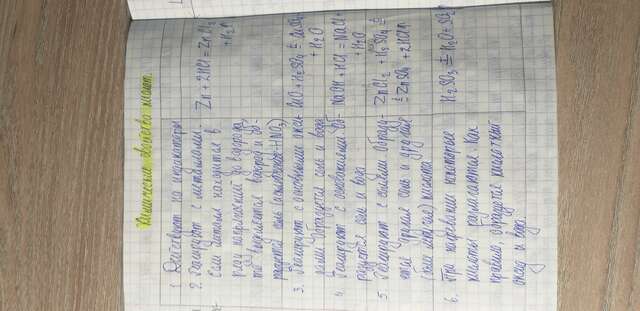 Химические свойства кислот.
1. Действуют на индикаторы
2. Реагируют с металлами.
Если металл находится в
ряду напряжений до водорода
то выделяется водород и об-
разуется соль (исключение HNO3)
Zn + 2HCl = ZnCl2
+ H2↑
3. Реагируют с основными окси-
дами. Образуется соль и вода
CuO + H2SO4 = CuSO4
+ H2O
4. Реагируют с основаниями. Об-
разуется соль и вода
NaOH + HCl = NaCl +
+ H2O
5. Реагируют с солями. Образу-
ется другая соль и другая
кислота
ZnCl2 + H2SO4 =
= ZnSO4 + 2HCl↑
6. При нагревании некоторые
кислоты разлагаются. Как
правило, образуется кислотный
оксид и вода
H2SO3 = H2O + SO2↑